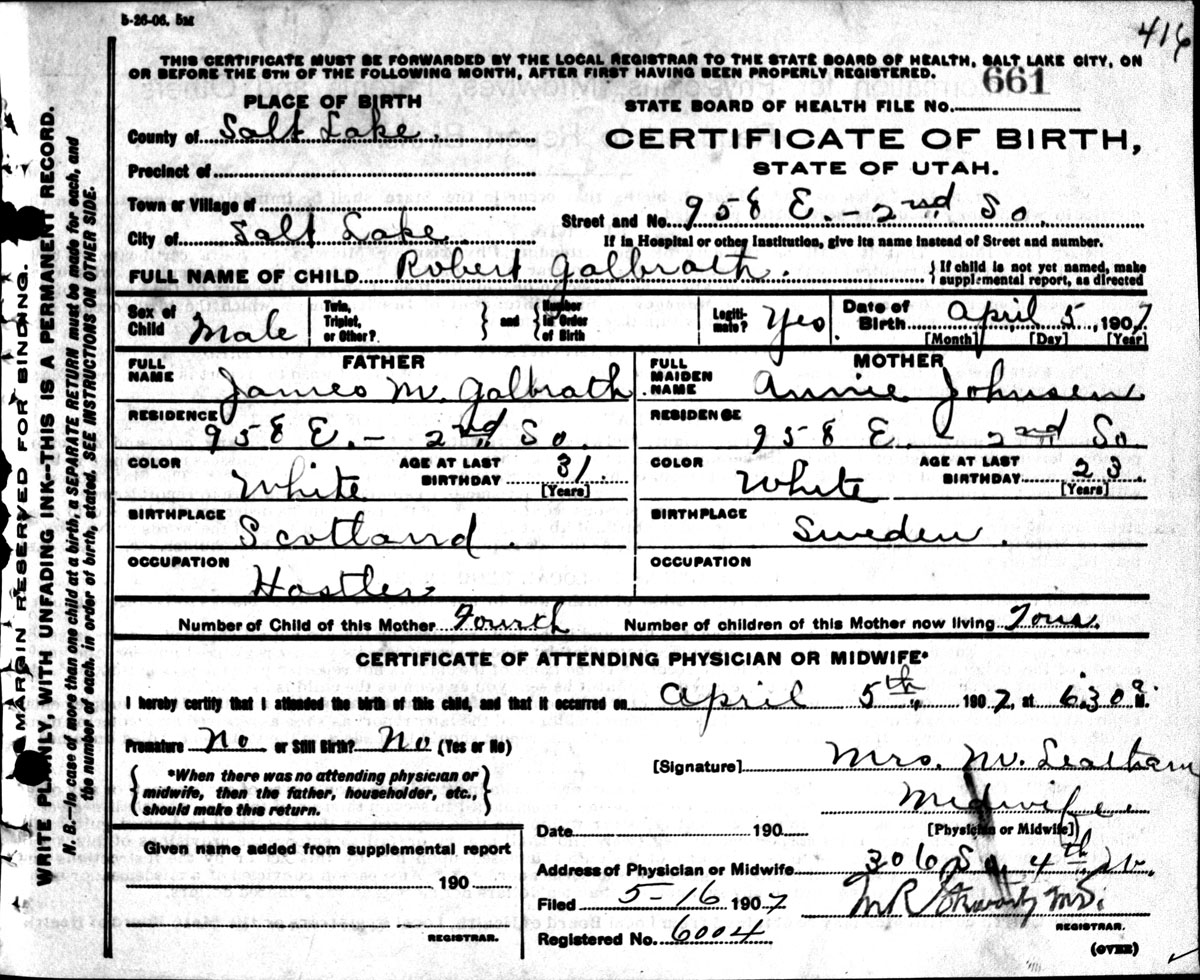 5-26-06. 5M
416
THIS CERTIFICATE MUST BE FORWARDED BY THE LOCAL REGISTRAR TO THE STATE BOARD OF HEALTH, SALT LAKE CITY, ON
OR BEFORE THE 5TH OF THE FOLLOWING MONTH, AFTER FIRST HAVING BEEN PROPERLY REGISTERED.
MARGIN RESERVED FOR BINDING.
WRITE PLAINLY, WITH UNFADING INK—THIS IS A PERMANENT RECORD.
N. B.—In case of more than one child at a birth, a SEPARATE RETURN must be made for each, and
the number of each, in order of birth, stated. SEE INSTRUCTIONS ON OTHER SIDE.
PLACE OF BIRTH
County of Salt Lake.
Precinct of
Town or Village of
City of Salt Lake
STATE BOARD OF HEALTH FILE NO. 661
CERTIFICATE OF BIRTH,
STATE OF UTAH.
Street and No. 958 E. - 2nd So.
If in Hospital or other Institution, give its name instead of Street and number.
FULL NAME OF CHILD Robert Galbrath. } If child is not yet named, make supplemental report, as directed
Sex of Child Male Twin, Triplet, or Other? } and { Number in Order of Birth Legiti-mate? Yes Date of Birth April 5, 1907
[Month] [Day] [Year]
FATHER
FULL NAME James M. Galbrath
RESIDENCE 958 E. - 2nd So.
COLOR White AGE AT LAST BIRTHDAY 31.
[Years]
BIRTHPLACE Scotland.
OCCUPATION Hostler
MOTHER
FULL MAIDEN NAME Annie Johnsen
RESIDENCE 958 E. - 2nd So.
COLOR White AGE AT LAST BIRTHDAY 23
[Years]
BIRTHPLACE Sweden.
OCCUPATION
Number of Child of this Mother Fourth Number of children of this Mother now living
CERTIFICATE OF ATTENDING PHYSICIAN OR MIDWIFE*
I hereby certify that I attended the birth of this child, and that it occurred on April 5th, 1907, at 6.30 a. M.
Premature No or Still Birth? No (Yes or No)
*When there was no attending physician or
midwife, then the father, householder, etc.,
should make this return.
[Signature] Mrs. M. Leatham
Midwife
[Physician or Midwife]
Date 190
Address of Physician or Midwife 306 So. 4th W.
Filed 5-16 1907
M.D.
REGISTRAR.
Registered No. 6004
(OVER)
Given name added from supplemental report
190
REGISTRAR.